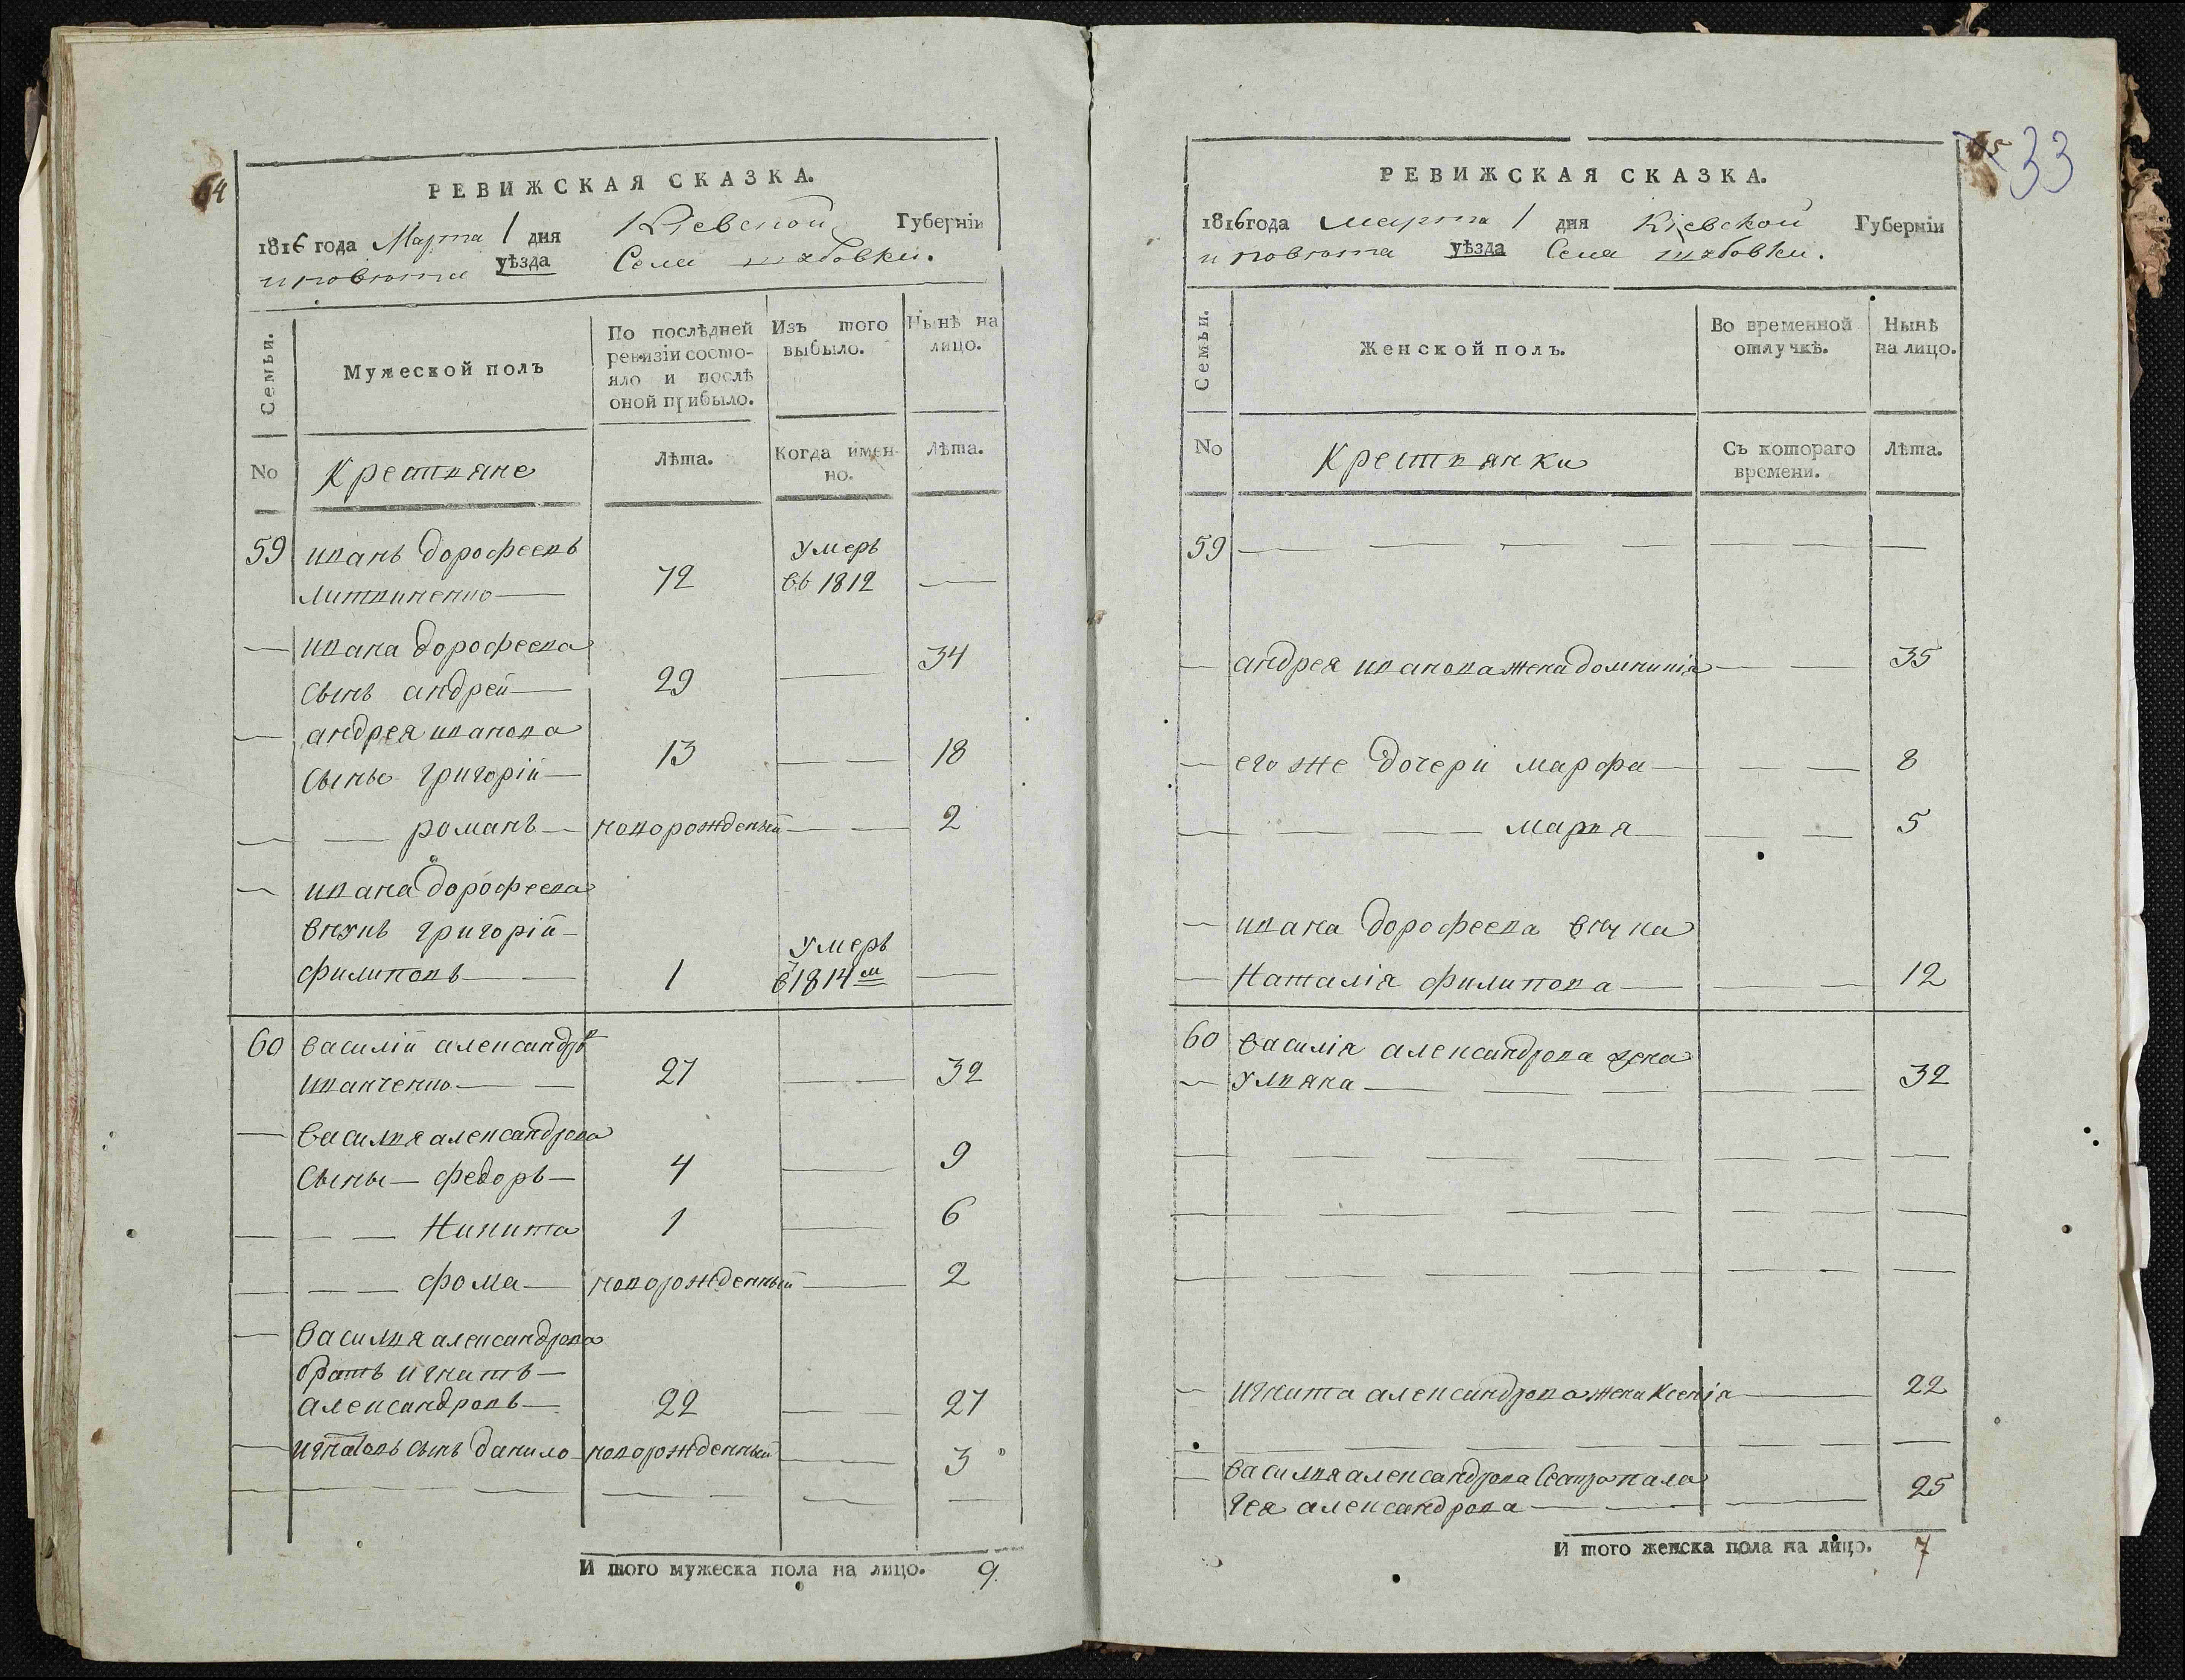 64
РЕВИЖСКАЯ СКАЗКА.
1816 года Марта 1 дня Кіевской Губерніи
и повѣта уѣзда Села шабовки.
Семьи.
Мужеской полъ
По послѣдней ревизіи состо-
яло и послѣ
оной прибыло.
Изъ того выбыло.
Нынѣ на лицо.
No
Крестьяне
Лѣта.
Когда имен-
но.
Лѣта.
59 иванъ дорофеевъ умеръ
литвиненко — 72 въ 1812 —
— ивана дорофеева
сынъ андрей — 29 — 34
— андрея иванова
сыны григорій — 13 — — 18
— — романъ — новорожденый — — 2
— ивана дорофеева
внукъ григорій — умеръ
филиповъ — — 1 в 1814м —
60 василій александръ
иванченко — — 27 — — 32
— василья александрова
сыны — федоръ — 4 — 9
— — — Никита 1 — 6
— — — фома — новорожденный — 2
— василья александрова
братъ игнатъ —
александровъ — 22 — — 27
— игнатовъ сынъ данило — новорожденный — — 3
— — — — — — — — — —
И того мужеска пола на лицо. 9.
65
33
РЕВИЖСКАЯ СКАЗКА.
1816 года марта 1 дня Кіевской Губерніи
и повѣта уѣзда Села шабовки.
Семьи.
Женской полъ.
Во временной
отлучкѣ.
Нынѣ
на лицо.
No
Крестьянки
Съ котораго
времени.
Лѣта.
59 — — — — — — —
— андрея иванова жена домникія — — 35
— его же дочери марфа — — — 8
— — — — марья — — — 5
— ивана дорофеева внука
— Наталія филипова — — — 12
60 василія александрова жена
— ульяна — — — — — 32
— — — — — — — —
— — — — — — — —
— — — — — — — —
— игната александрова жена Ксенія — 22
— — — — — — — —
— василья александрова сестра пала
гея александрова — — — 25
И того женска пола на лицо. 7